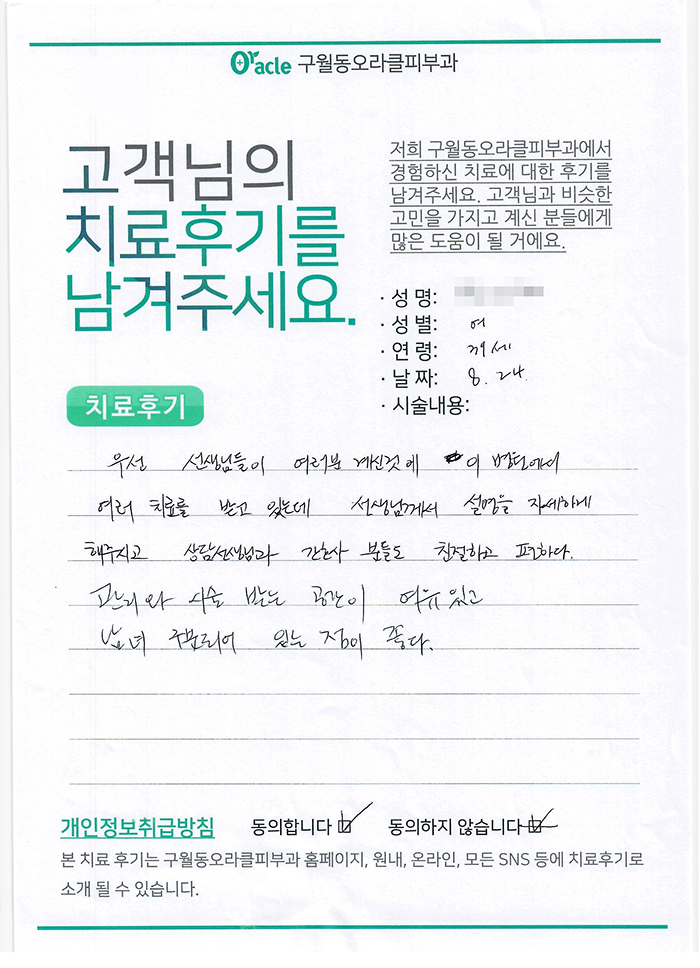 Oracle 구월동오라클피부과
고객님의
치료후기를
남겨주세요.
저희 구월동오라클피부과에서
경험하신 치료에 대한 후기를
남겨주세요. 고객님과 비슷한
고민을 가지고 계신 분들에게
많은 도움이 될 거에요.
· 성 명:
· 성 별: 여
· 연 령: 39세
· 날 짜: 8. 24.
· 시술내용:
치료후기
우선 선생님들이 여러분 계신것에 이 병원에서
여러 치료를 받고 있는데 선생님께서 설명을 자세하게
해주시고 상담선생님과 간호사 분들도 친절하고 편하다.
관리와 시술 받는 공간이 여유있고
남녀 구분되어 있는 점이 좋다.
개인정보취급방침 동의합니다 동의하지 않습니다
본 치료 후기는 구월동오라클피부과 홈페이지, 원내, 온라인, 모든 SNS 등에 치료후기로
소개 될 수 있습니다.